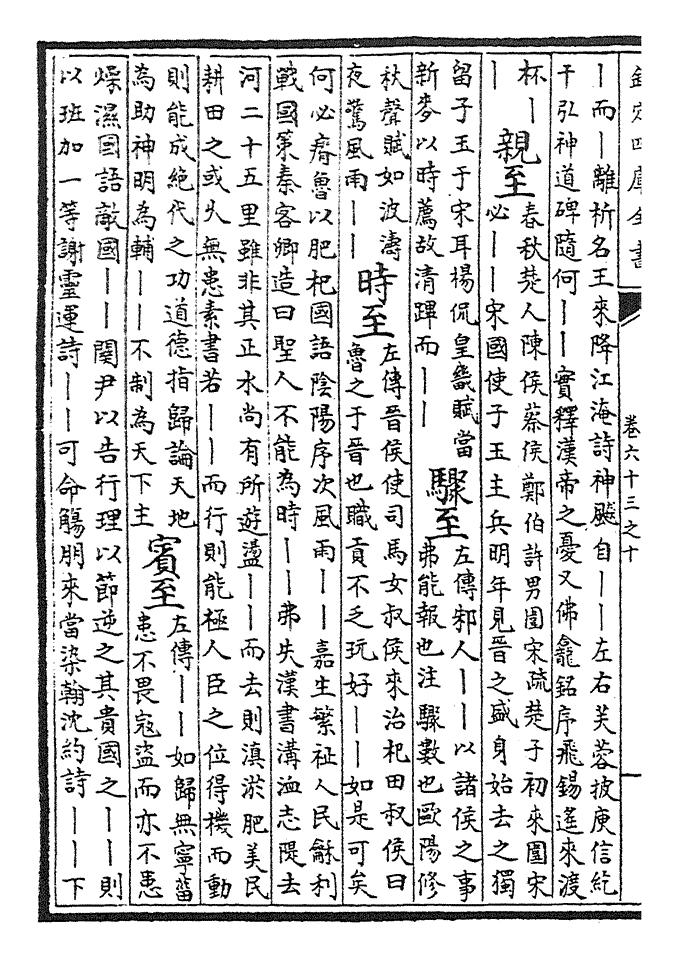 欽定四庫全書 卷六十三之十 一
｜而｜離析名王來降江淹詩神飈自｜｜左右芙蓉披庾信紇
干弘神道碑隨何｜｜實釋漢帝之憂又佛龕銘序飛錫遙來渡
杯｜
｜
親至
春秋楚人陳侯蔡侯鄭伯許男圍宋疏楚子初來圍宋
必｜｜宋國使子玉主兵明年見晉之盛身始去之獨
留子玉于宋耳楊侃皇畿賦當
新麥以時薦故清蹕而｜｜
驟至
左傳邾人｜｜以諸侯之事
弗能報也注驟數也歐陽修
秋聲賦如波濤
夜驚風雨｜｜
時至
左傳晉侯使司馬女叔侯來治杞田叔侯曰
魯之于晉也職貢不乏玩好｜｜如是可矣
何必瘠魯以肥杞國語陰陽序次風雨｜｜嘉生繁祉人民龢利
戰國策秦客卿造曰聖人不能為時｜｜弗失漢書溝洫志隄去
河二十五里雖非其正水尚有所遊盪｜｜而去則滇淤肥美民
耕田之或久無患素書若｜｜而行則能極人臣之位得機而動
則能成絕代之功道德指歸論天地
為助神明為輔｜｜不制為天下主
賓至
左傳｜｜如歸無寧菑
患不畏寇盜而亦不患
燥濕國語敵國｜｜關尹以告行理以節逆之其貴國之｜｜則
以班加一等謝靈運詩｜｜可命觴朋來當染翰沈約詩｜｜下